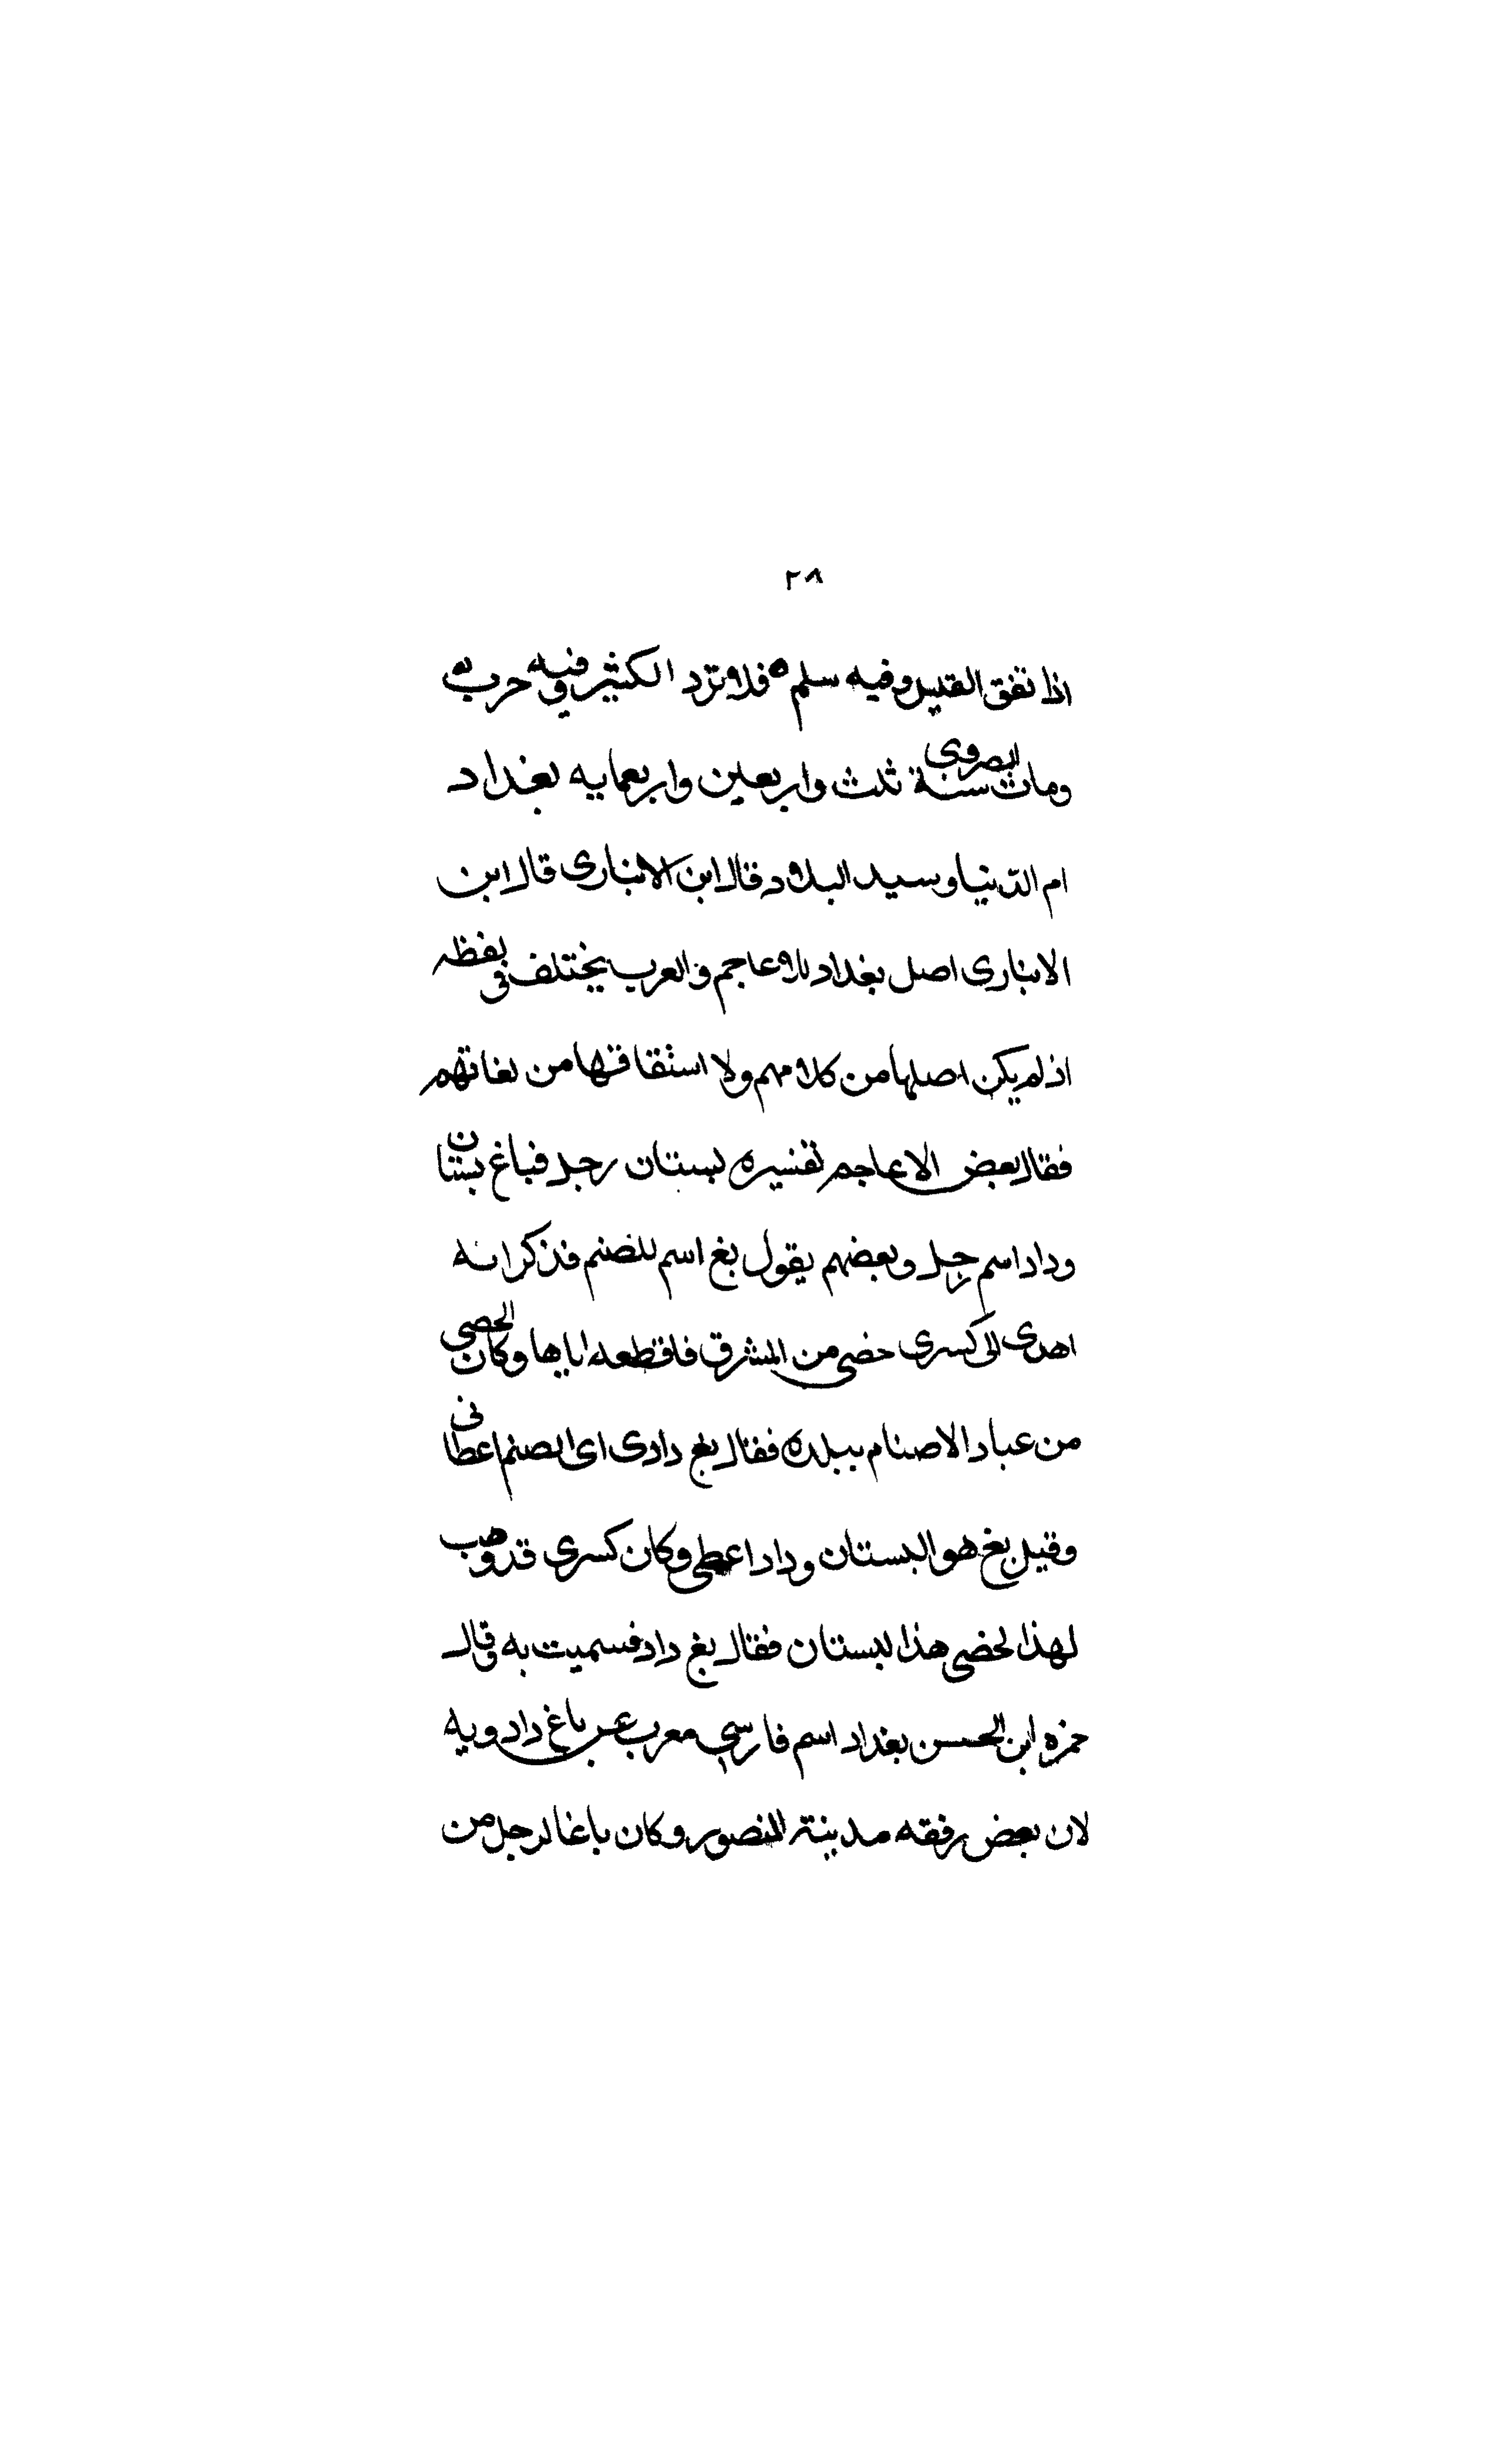 ٢٨
اذا تفق القيس وفيه سلم ه فلا وترد الكثير وفيه حرب ه
ومات البصروي سنة ثلث واربعين واربعمايه بغداد
ام الدنيا وسيد البلاد قال ابن الانباري قال ابن
الانبارى اصل بغداد للاعاجم والعرب يختلف في لفظه
اذ لم يكن اصلها من كلامهم ولا استقاقها من لغاتهم
فقال بعض الاعاجم تفسيره بستان رجل فباغ بستان
وداد اسم رجل وبعضهم يقول بغ اسم للضنم فذكر انه
اهدى الى كسرى خضى من المشرق فاقطعه اياها وكان الخصي
من عباد الاصنام ببلده فقال بغ دادى اى الصنم اعطانى
وقيل بغ هو البستان وداد اعطى وكان كسرى قد وهب
لهذا لخضى هذا لبستان فقال بغ داد فسميت به قال
حمزه ابن الحسن بغداد اسم فارسي معرب عن باغ دادويه
لان بعض رفقه مدينة المنصور وكان باغا لرجل من